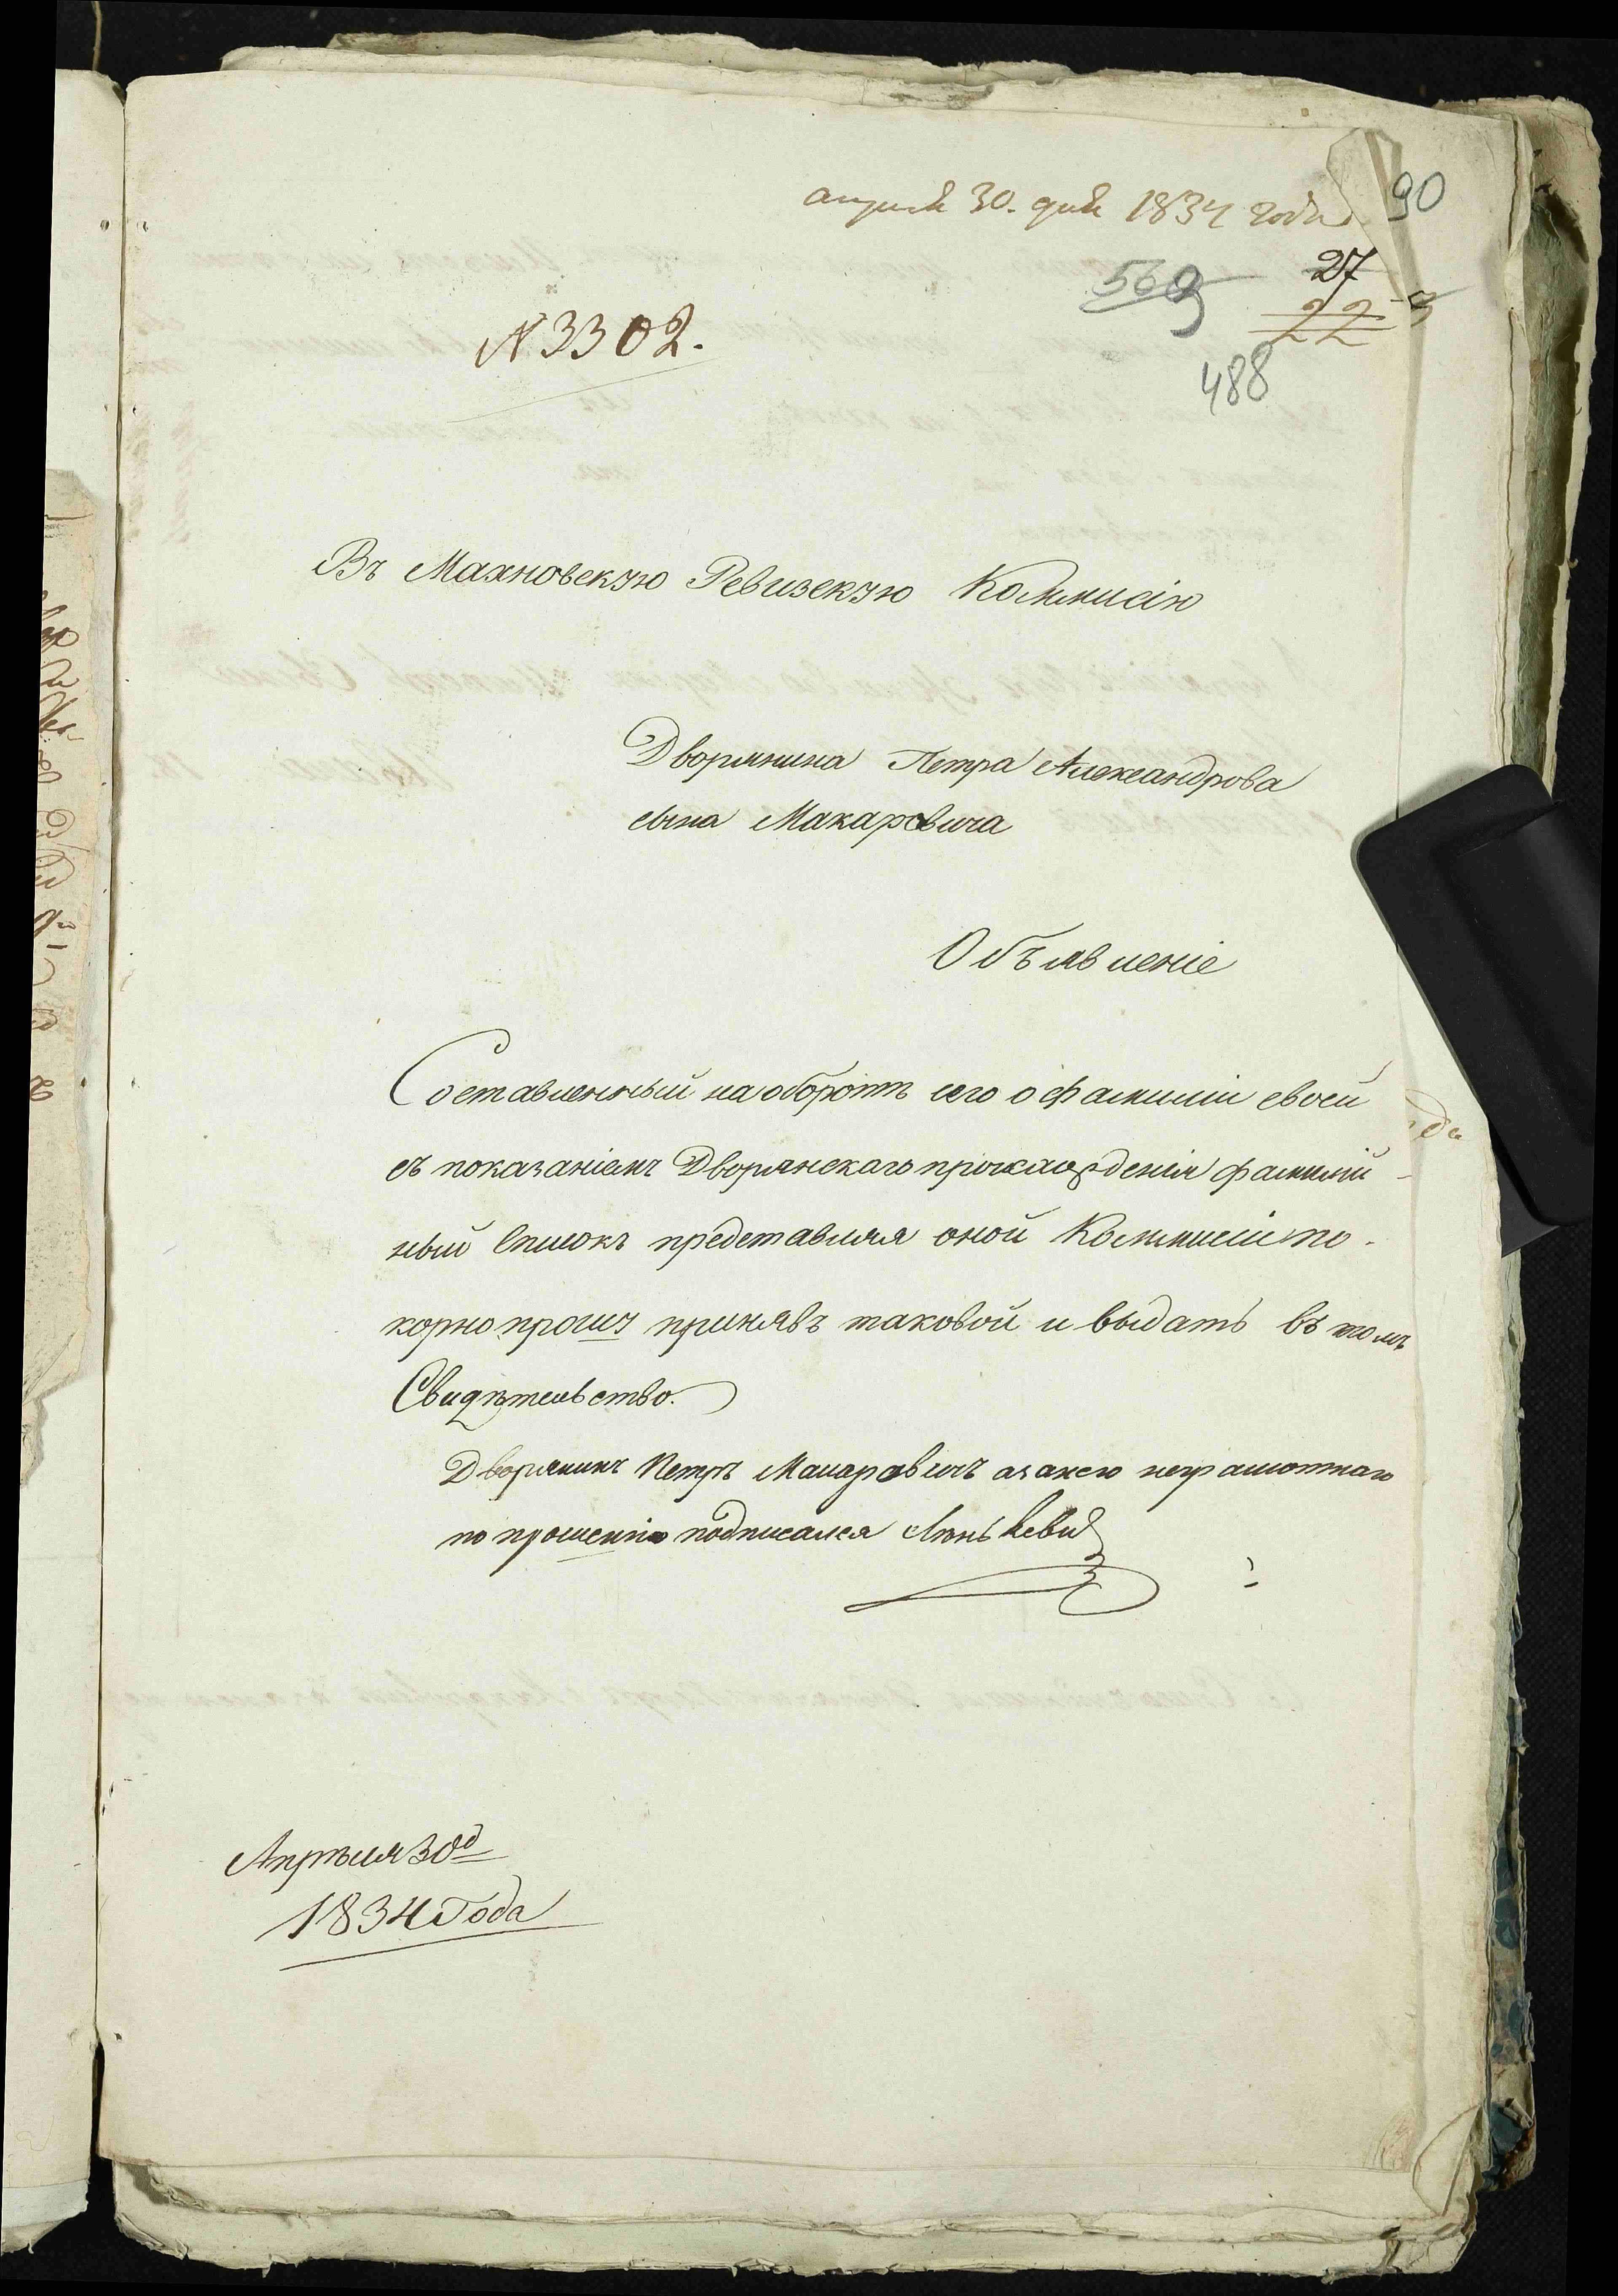 апреля 30. дня 1834 года
90
27
569
22
488
N 3302.
Въ Махновскую Ревизскую Коммисію
Дворянина Петра Александрова
сына Макаровича
Объявленіе
Составленный на оборотѣ сего о фамиліи своей
съ показаніемъ Дворянскаго происхожденія фамилій
ный Списокъ представляя оной Коммисіи по-
корно прошу принявъ таковой и выдать въ томъ
Свидѣтельство.
Дворянинъ Петръ Макаровичъ а за него неграмотнаго
по прошенію подписался
Апрѣля 30д
1834 Года